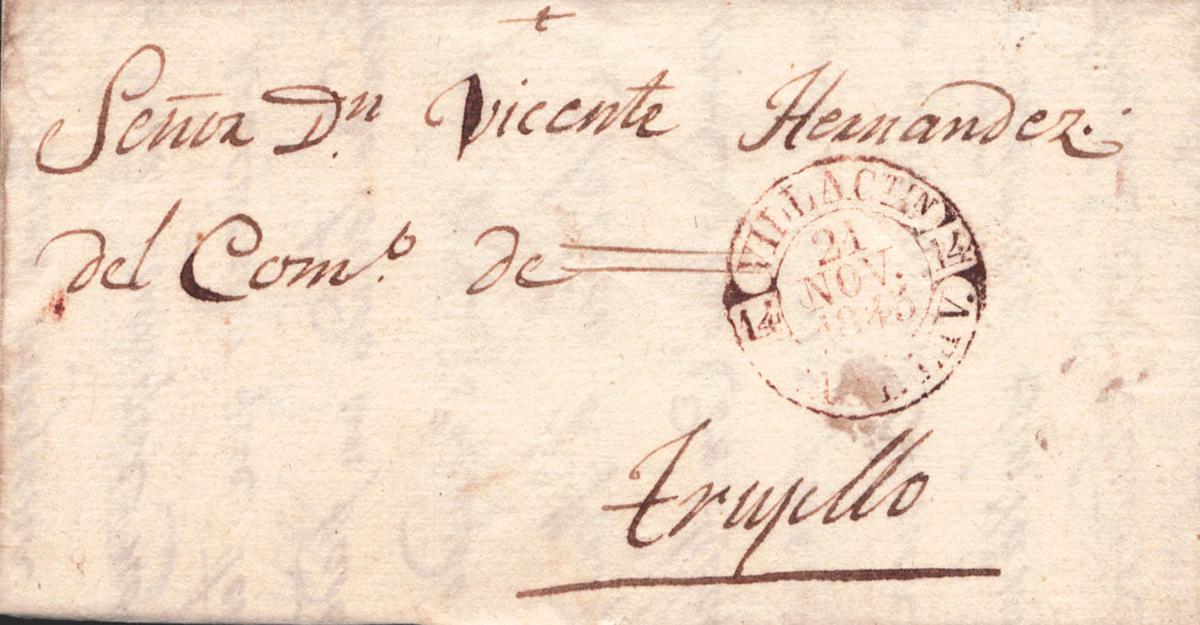 Señor Dn Vicente Hernandez.
del Como. de
VILLACTIN
21
NOV.
1845
14
Trujillo